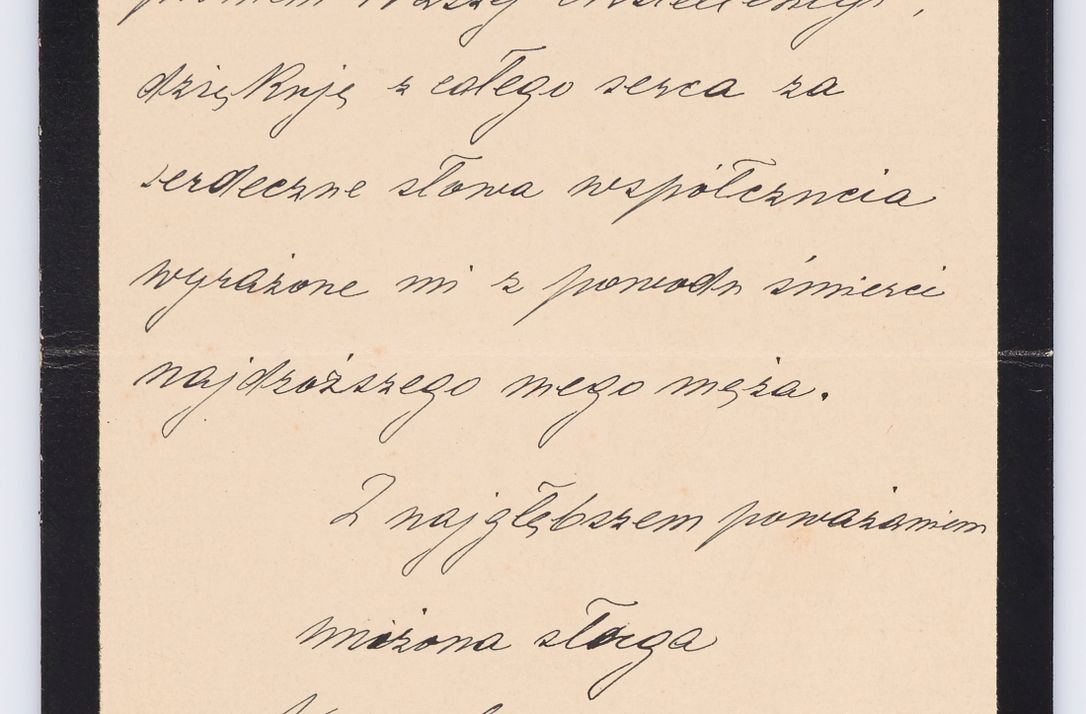 dziękuję z całego serca za
serdeczne słowa współczucia
wyrażone mi z powodu śmierci
najdroższego mego męża.
Z najgłębszem poważaniem
uniżona sługa